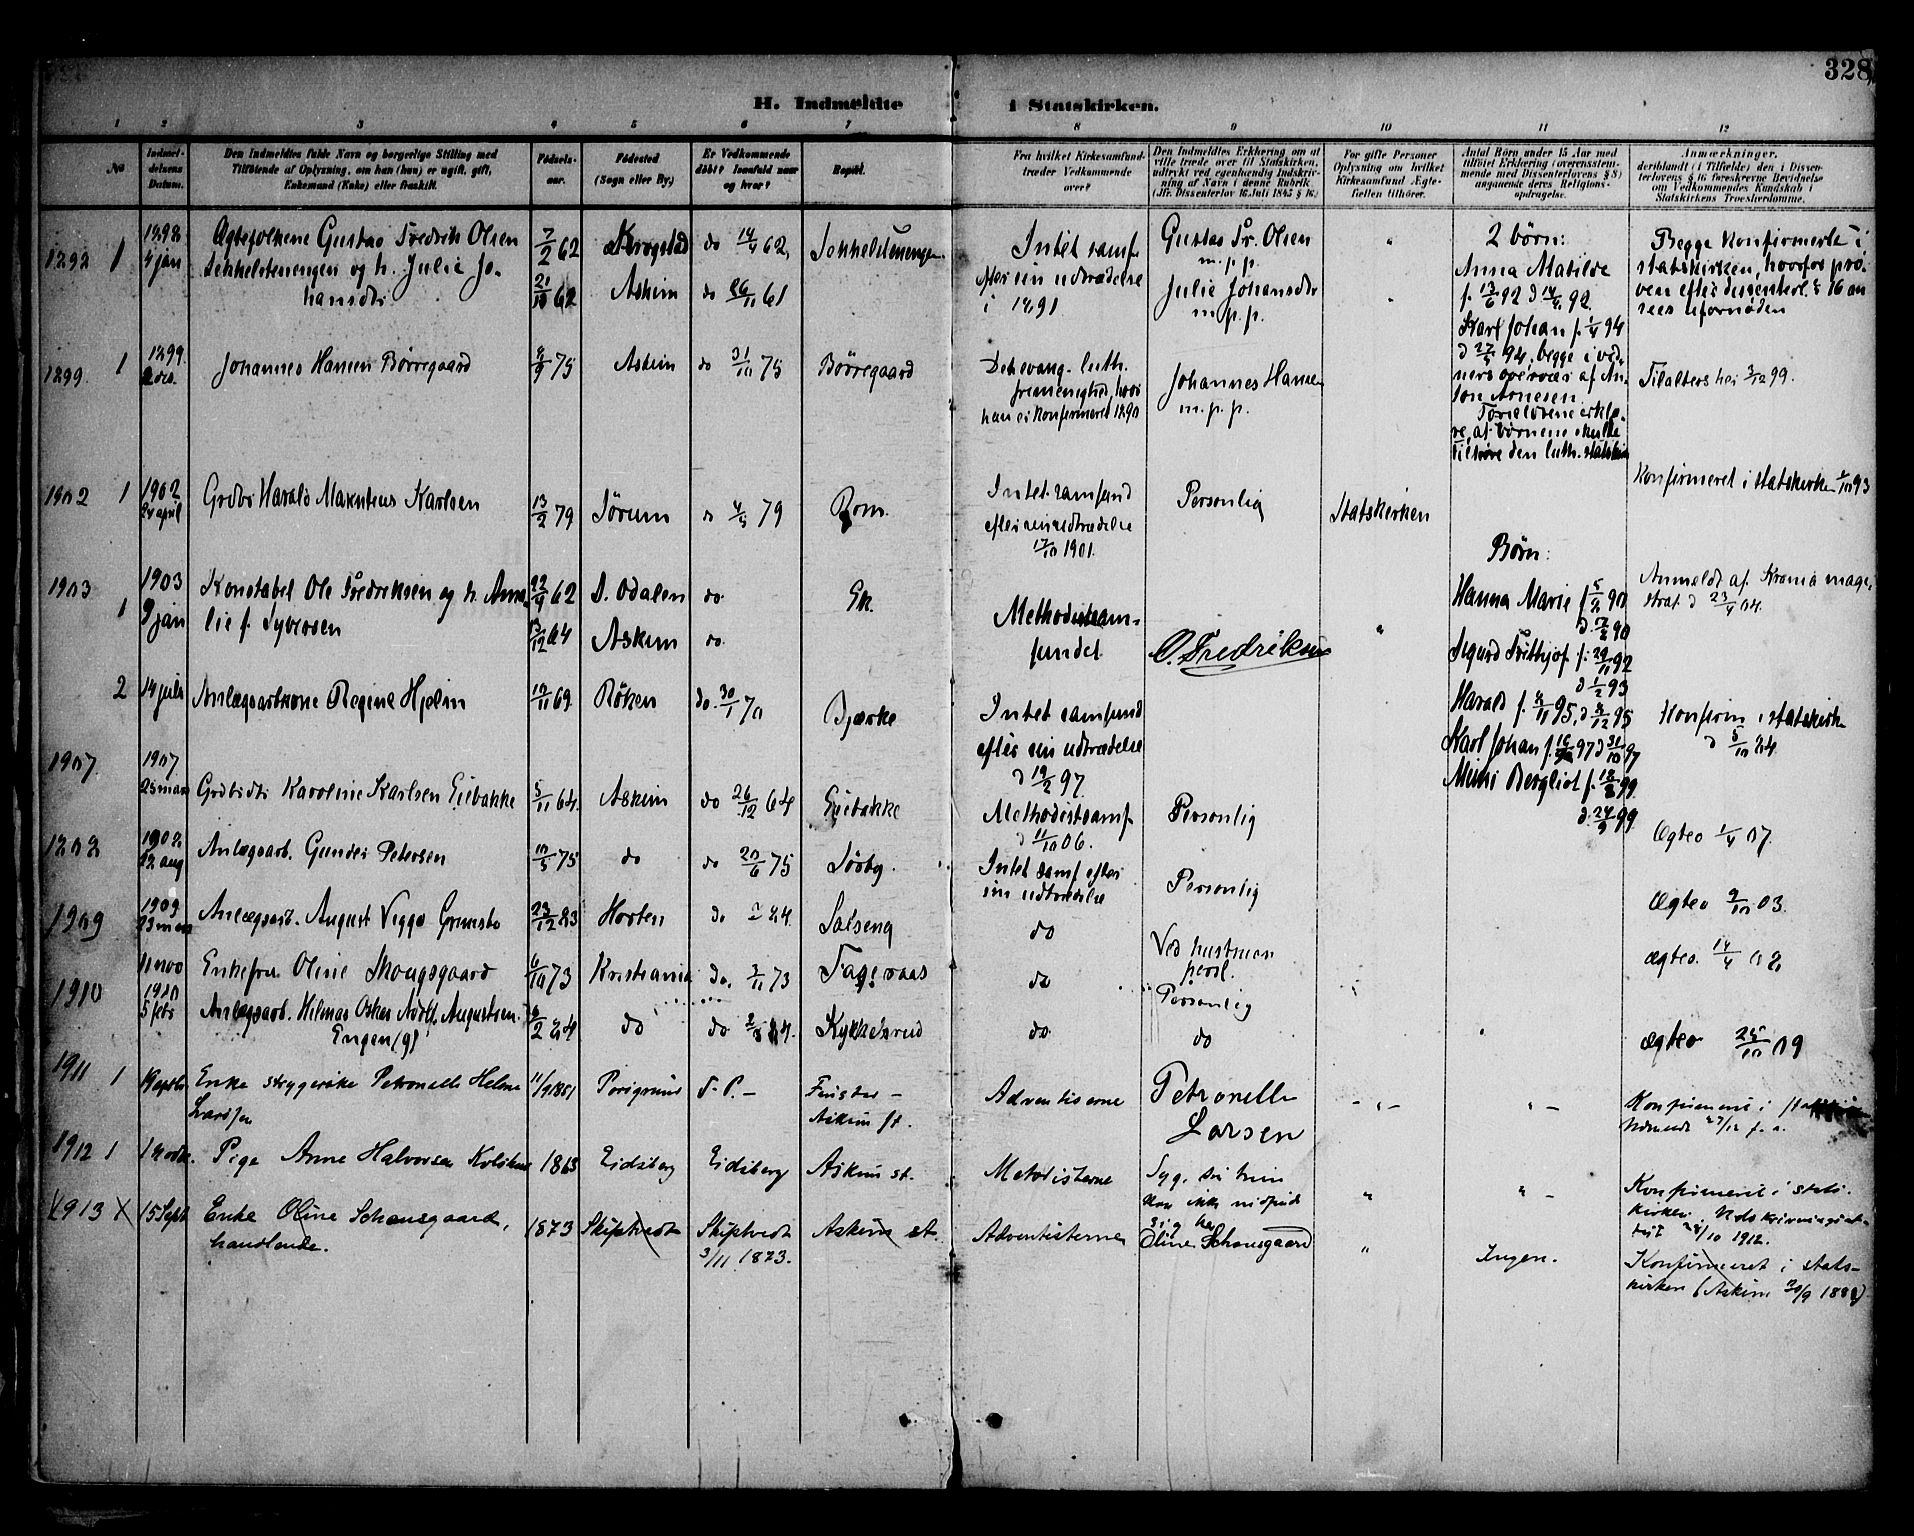 328
H. Indmeldte i Statskirken.
1 2 3 4 5 6 7 8 9 10 11 12
No
Indmel-
delsens
Datum.
Den Indmeldtes fulde Navn og borgerlige Stilling med
Tilføiende af Oplysning, om han (hun) er ugift, gift,
Enkemand (Enke) eller fraskilt.
Fødsels-
aar.
Fødested
(Sogn eller By.)
Er Vedkommende
døbt? Isaafald naar
og hvor?
Bopæl.
Fra hvilket Kirkesamfund
træder Vedkommende
over?
Den Indmeldtes Erklæring om at
ville træde over til Statskirken,
udtrykt ved egenhændig Indskriv-
ning af Navn i denne Rubrik
(Jfr. Dissenterlov 16 Juli 1845 § 16.)
For gifte Personer
Oplysning om hvilket
Kirkesamfund Ægte-
fællen tilhører.
Antal Børn under 15 Aar med
tilføiet Erklæring (overensstem-
mende med Dissenterlovens § 8)
angaaende deres Religions-
opdragelse.
Anmærkninger,
deriblandt (i Tilfælde) den i Dissen-
terlovens § 16 foreskrevne Bevidnelse
om Vedkommendes Kundskab i
Statskirkens Troeslærdomme.
1898 1 1898 4 jan
Ægtefolkene Gustav Fredrik Olsen
og h. Julie Jo-
hansdtr
7/2 62 Krogstad do 14/4 62
Askim do 61
Intet samf
efter sin udtrædelse
i 1891
Gustav Fr. Olsen
m.p.p.
Julie Johansdtr
m.p.p.
2 børn:
Anna Matilde
f. 13/6 92
Karl Johan f. 1/4 94
d 27/5 94, begge i vid-
ners overvær af An-
ton Arnesen.
Forældrene erklæ-
re, at børnene skulle
tilhøre den luth. statskirke
Begge konfirmerte i
statskirken, hvorfor prø-
ven efter dissenterl. § 16 an
sees ufornøden
1899 1 1899
Johannes Hansen Börregaard
75 Askim do 31/10 75 Börregaard
Det evang. luth.
frimenighed, hvor
han er konfirmeret 1890
Johannes Hansen
m.p.p.
Tilalters her 3/12 99.
1902 1 1902 24 april
Grdbr Harald Maxentius Karlsen
13/2 79 Sørum do 79 Rom.
Intet samfund
efter sin udtrædelse
17/10 1901.
Personlig
Statskirken
Konfirmeret i statskirken 93
1903 1 1903 9 jan
Konstabel Ole Fredriksen og h. Ama-
lie f. Syversen
62 S. Odalen do.
13/12 64 Askim do.
Ek.
Methodistsam-
fundet
O. Fredriksen
Børn:
Hanna Marie f 5/2 90
Sigurd Frithjof f. 29/11 92
d 1/2 93
Harald f. 95, d 95
Karl Johan f. 97 d 31/10 97
Bergliot f. 99
d. 99
Anmeldt af. Krania magi-
strat d 23/4 04.
2 14 juli
Anlægsarbkone Regine Hjelm
69 Röken do. 30/1 70 Bjerke
Intet samfund
efter sin udtrædelse
d 19/2 97.
Konfirm i statskirk
d 5/10 84.
1907 1907 25 mars
Grdbrdtr Karoline Karlsen Eiebakke
5/11 64. Askim do 26/12 64 Eiebakke
Methodistsamf
d 11/10 06.
Personlig
Ægtev 1/4 07.
1908 22 aug
Anlægsarb. Gunder Petersen
75 do do 20/6 75
Intet samf efter
sin udtrædelse
Personlig
Ægtev 03.
1909 1909 23 mars
Anlægsarb. August Viggo Grimsbo
23/12 83 Horten do 84
do
Ved hustruen
persl.
ægtev. 14/4
11 nov
Enkefru Oline Skougsgaard
73 Kristiania do. 73
do
Personlig
1910 1910 5 febr
Anlægsarb. Hilmar Oskar Adolf Augustsen
Engen (g)
84 do do 84. Kykkelsrud
do
do
Ægtev 25/10 09
1911 1
Enke strygerske Petronelle Helene
Larsen
11/9 1851 Porsgrund d. P. –
Askim st.
Adventisterne
Petronelle
Larsen
Konfirmeret i
Udmeldt 27/12 f. a.
1912 1
Pige Anne Halvorsen
1863 Eidsberg Eidsberg Askim st.
Metodisterne
Syg, saa hun
kan ikke
sig her
Konfirmeret i stats.
kirken. Udskrivningsat-
test 24/10 1912.
1913 X 15 Sept
Enke Oline Schausgaard,
handlende.
1873 Skiptvedt Skiptvedt
3/11 1873.
Askim st.
Adventisterne
Oline Schausgaard
Ingen.
Konfirmeret i stats-
kirken (Askim 30/9 1888)